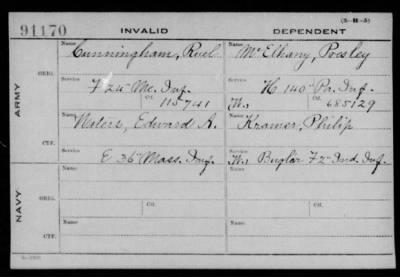 (3-H-5)
91170 INVALID DEPENDENT
Name Name
Cunningham, Ruel McElhany, Pressley
ARMY
ORIG.
Service Service
F 24" Me. Inf. H 140" Pa. Inf.
Ctf. Ctf.
115741 W. 685129
Name Name
Waters, Edward A. Kramer, Philip
CTF.
Service Service
E 36" Mass. Inf. W. Buglar F 72" Ind. Inf.
NAVY
ORIG.
Name Name
Ctf. Ctf.
CTF.
Name Name